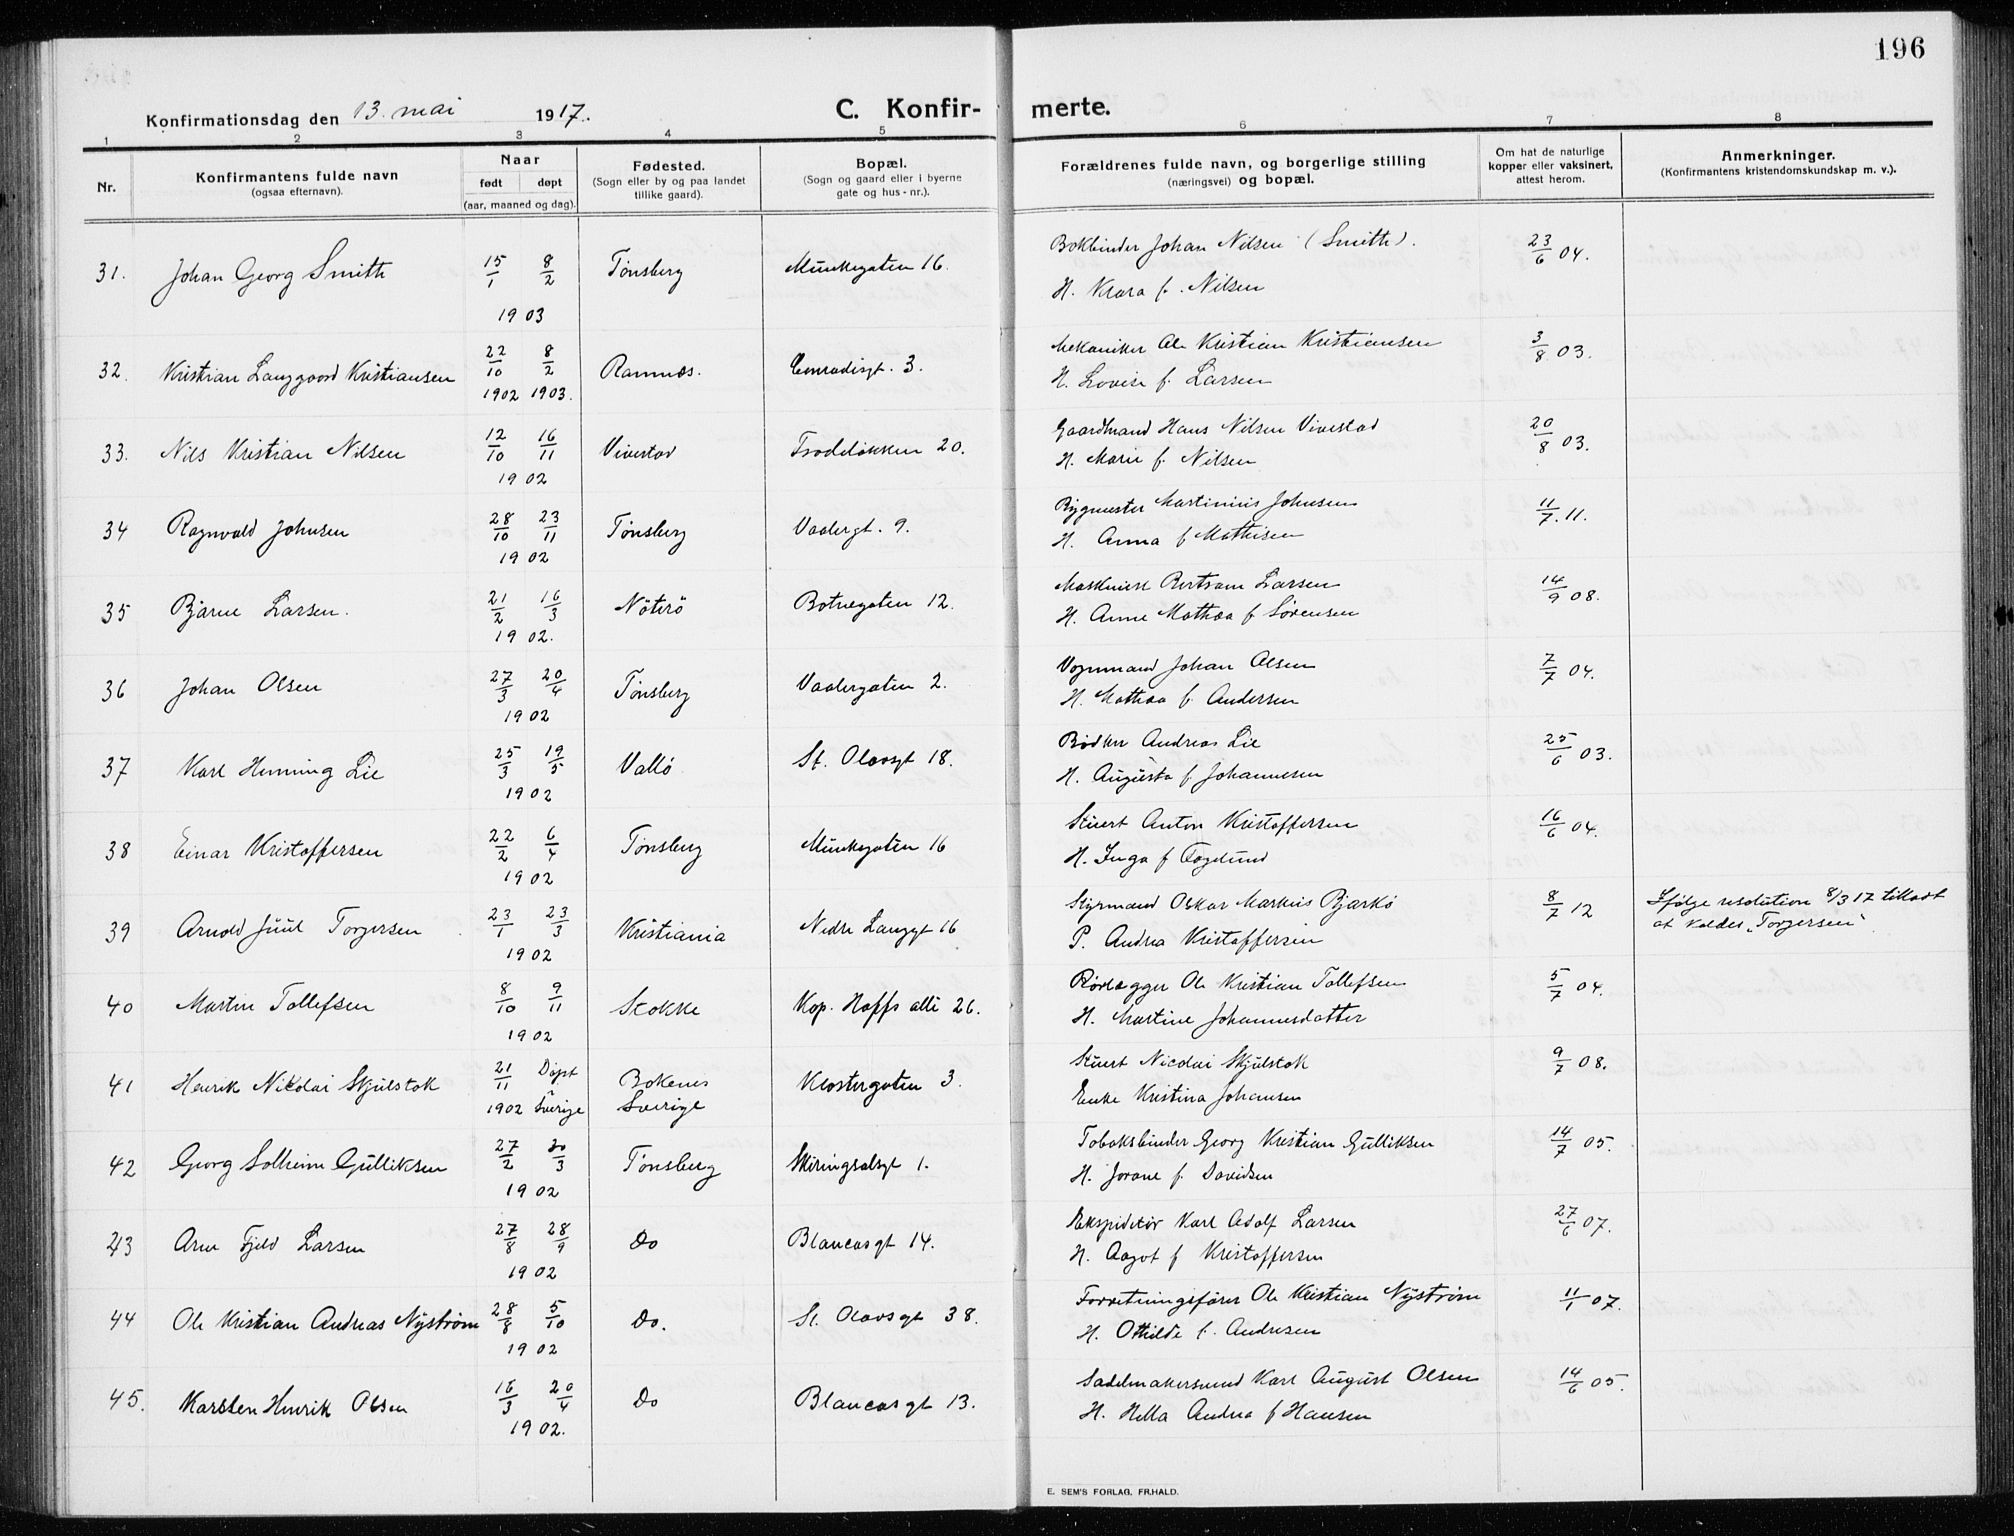 196
Konfirmationsdag den 13. mai 1917.
C. Konfir- merte.
1 2 3 4 5 6 7 8
Nr.
Konfirmantens fulde navn
(ogsaa efternavn).
Naar
født døpt
(aar, maaned og dag).
Fødested.
(Sogn eller by og paa landet
tillike gaard).
Bopæl.
(Sogn og gaard eller i byerne
gate og hus-nr.).
Forældrenes fulde navn, og borgerlige stilling
(næringsvei) og bopæl.
Om hat de naturlige
kopper eller vaksinert,
attest herom.
Anmerkninger.
(Konfirmantens kristendomskundskap m. v.).
31. Johan Georg Smith 15/1 8/2 Tønsberg Munkegaten 16. Bokbinder Johan Nilsen (Smith). 23/6 04.
1903 H. Klara f. Nilsen
32. Kristian Langgaard Kristiansen 22/10 8/2 Ramnes. Conradisgt. 3. Mekaniker Ole Kristian Kristiansen 3/8 03.
1902 1903. H. Lovise f. Larsen
33. Nils Kristian Nilsen 12/10 16/11 Vivestad Træleløkken 20. Gaardmand Hans Nilsen Vivestad 20/8 03.
1902 H. Marie f. Nilsen
34 Ragnvald Johnsen 28/10 23/11 Tønsberg Vaalergt. 9. Bygmester Martinius Johnsen 11/7. 11.
1902 H. Anna f Mathisen
35 Bjarne Larsen. 21/2 16/3 Nöterö Botnegaten 12. Maskinist Bertram Larsen 14/9 08.
1902. H. Anne Mathea f Sørensen
36 Johan Olsen 27/3 20/4 Tønsberg Vaalergaten 2. Vognmand Johan Olsen 7/7 04.
1902 H. Mathea f. Andersen
37 Karl Henning Lie 25/3 19/5 Vallö St. Olavsgt 18. Bødker Andreas Lie 25/6 03.
1902 H. Augusta f. Johannesen
38 Einar Kristoffersen 22/2 6/4 Tønsberg Munkegaten 16 Stuert Anton Kristoffersen 16/6 04.
1902 H. Inga f Fagelund
39 Arnold Juul Torgersen 23/1 23/3 Kristiania Nedre Langgt 16 Styrmand Oskar Markus Bjarkö 8/7 12 Ifølge resolution 8/3 17 tilladt
1902 P. Andrea Kristoffersen at kaldes „Torgersen“
40 Martin Tollefsen 8/10 9/11 Stokke Kap. Hoffs allé 26. Rørlægger Ole Kristian Tollefsen 5/7 04.
1902 H. Martine Johannesdatter
41 Henrik Nikolai Skjulstok 21/11 Döpt i Bokenes Klostergaten 3. Stuert Nicolai Skjulstok 9/7 08.
1902 Sverige Sverige Enke Kristina Johansen
42 Georg Solheim Gulliksen 27/2 30/3 Tønsberg Skiringsalsgt 1. Tobaksbinder Georg Kristian Gulliksen 14/7 05.
1902 H. Jorane f. Davidsen
43 Arne Fjeld Larsen 27/8 28/9 Do Blancasgt 14. Ekspeditør Karl Adolf Larsen 27/6 07.
1902 H. Aagot f Kristoffersen
44 Ole Kristian Andreas Nyström 28/8 5/10 Do. St. Olavsgt 38. Forretningsfører Ole Kristian Nyström 11/1 07.
1902 H. Othilde f. Andresen
45. Karsten Henrik Olsen 16/3 20/4 Do Blancasgt 13. Sadelmakersvend Karl August Olsen 14/6 05.
1902. H. Hella Andrea f Hansen
E. SEM'S FORLAG, FR.HALD.